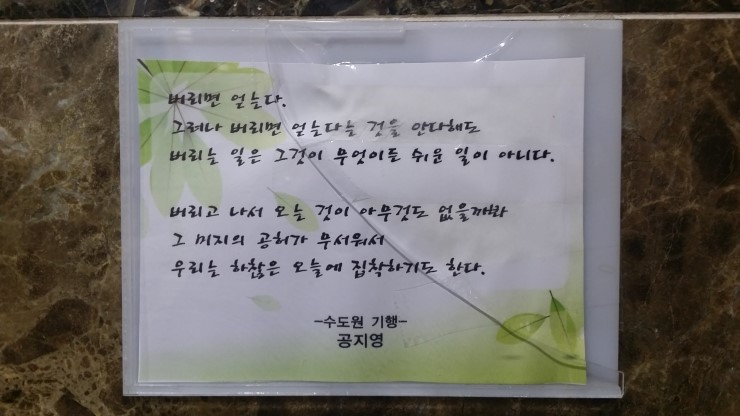 버리면 얻는다.
그러나 버리면 얻는다는 것을 안다해도
버리는 일은 그것이 무엇이든 쉬운 일이 아니다.
버리고 나서 오는 것이 아무것도 없을까봐
그 미지의 공허가 무서워서
우리는 하찮은 오늘에 집착하기도 한다.
-수도원 기행-
공지영